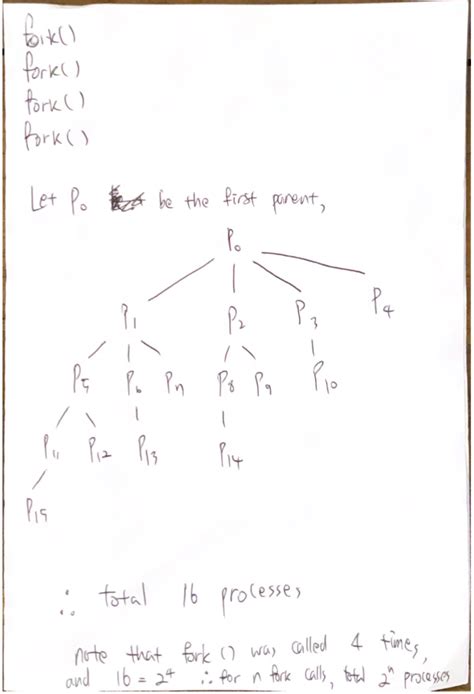 fork()
fork()
fork()
fork()
Let P₀ be the first parent,
P₀
P₁ P₂ P₃ P₄
P₅ P₆ P₇ P₈ P₉ P₁₀
P₁₁ P₁₂ P₁₃ P₁₄
P₁₅
∴ total 16 processes
note that fork () was called 4 times,
and 16 = 2⁴ ∴ for n fork calls, total 2ⁿ processes